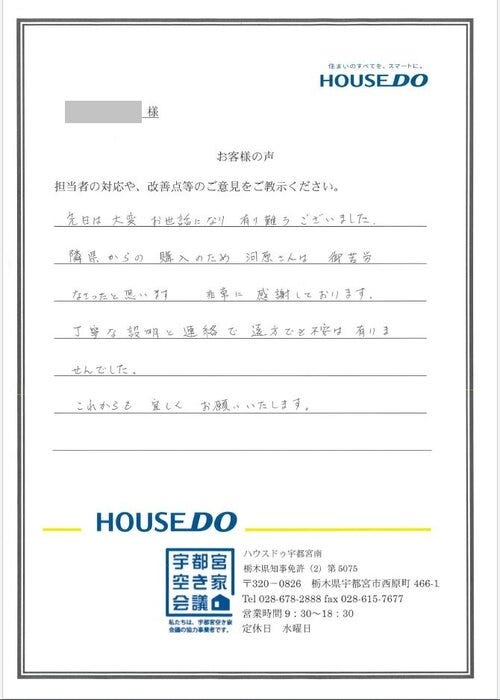 住まいのすべてを、スマートに。
HOUSEDO
様
お客様の声
担当者の対応や、改善点等のご意見をご教示ください。
先日は 大変 お世話になり 有り難う ございました。
隣県からの 購入のため 河原さんは 御苦労
なさったと思います 非常に 感謝しております。
丁寧な説明と連絡で 遠方でも不安は 有りま
せんでした。
これからも 宜しく お願いいたします。
HOUSEDO
宇都宮
空き家
会議
私たちは、宇都宮空き家
会議の協力事業者です。
ハウスドゥ宇都宮南
栃木県知事免許（2）第5075
〒320－0826 栃木県宇都宮市西原町 466-1
Tel 028-678-2888 fax 028-615-7677
営業時間 9：30～18：30
定休日 水曜日